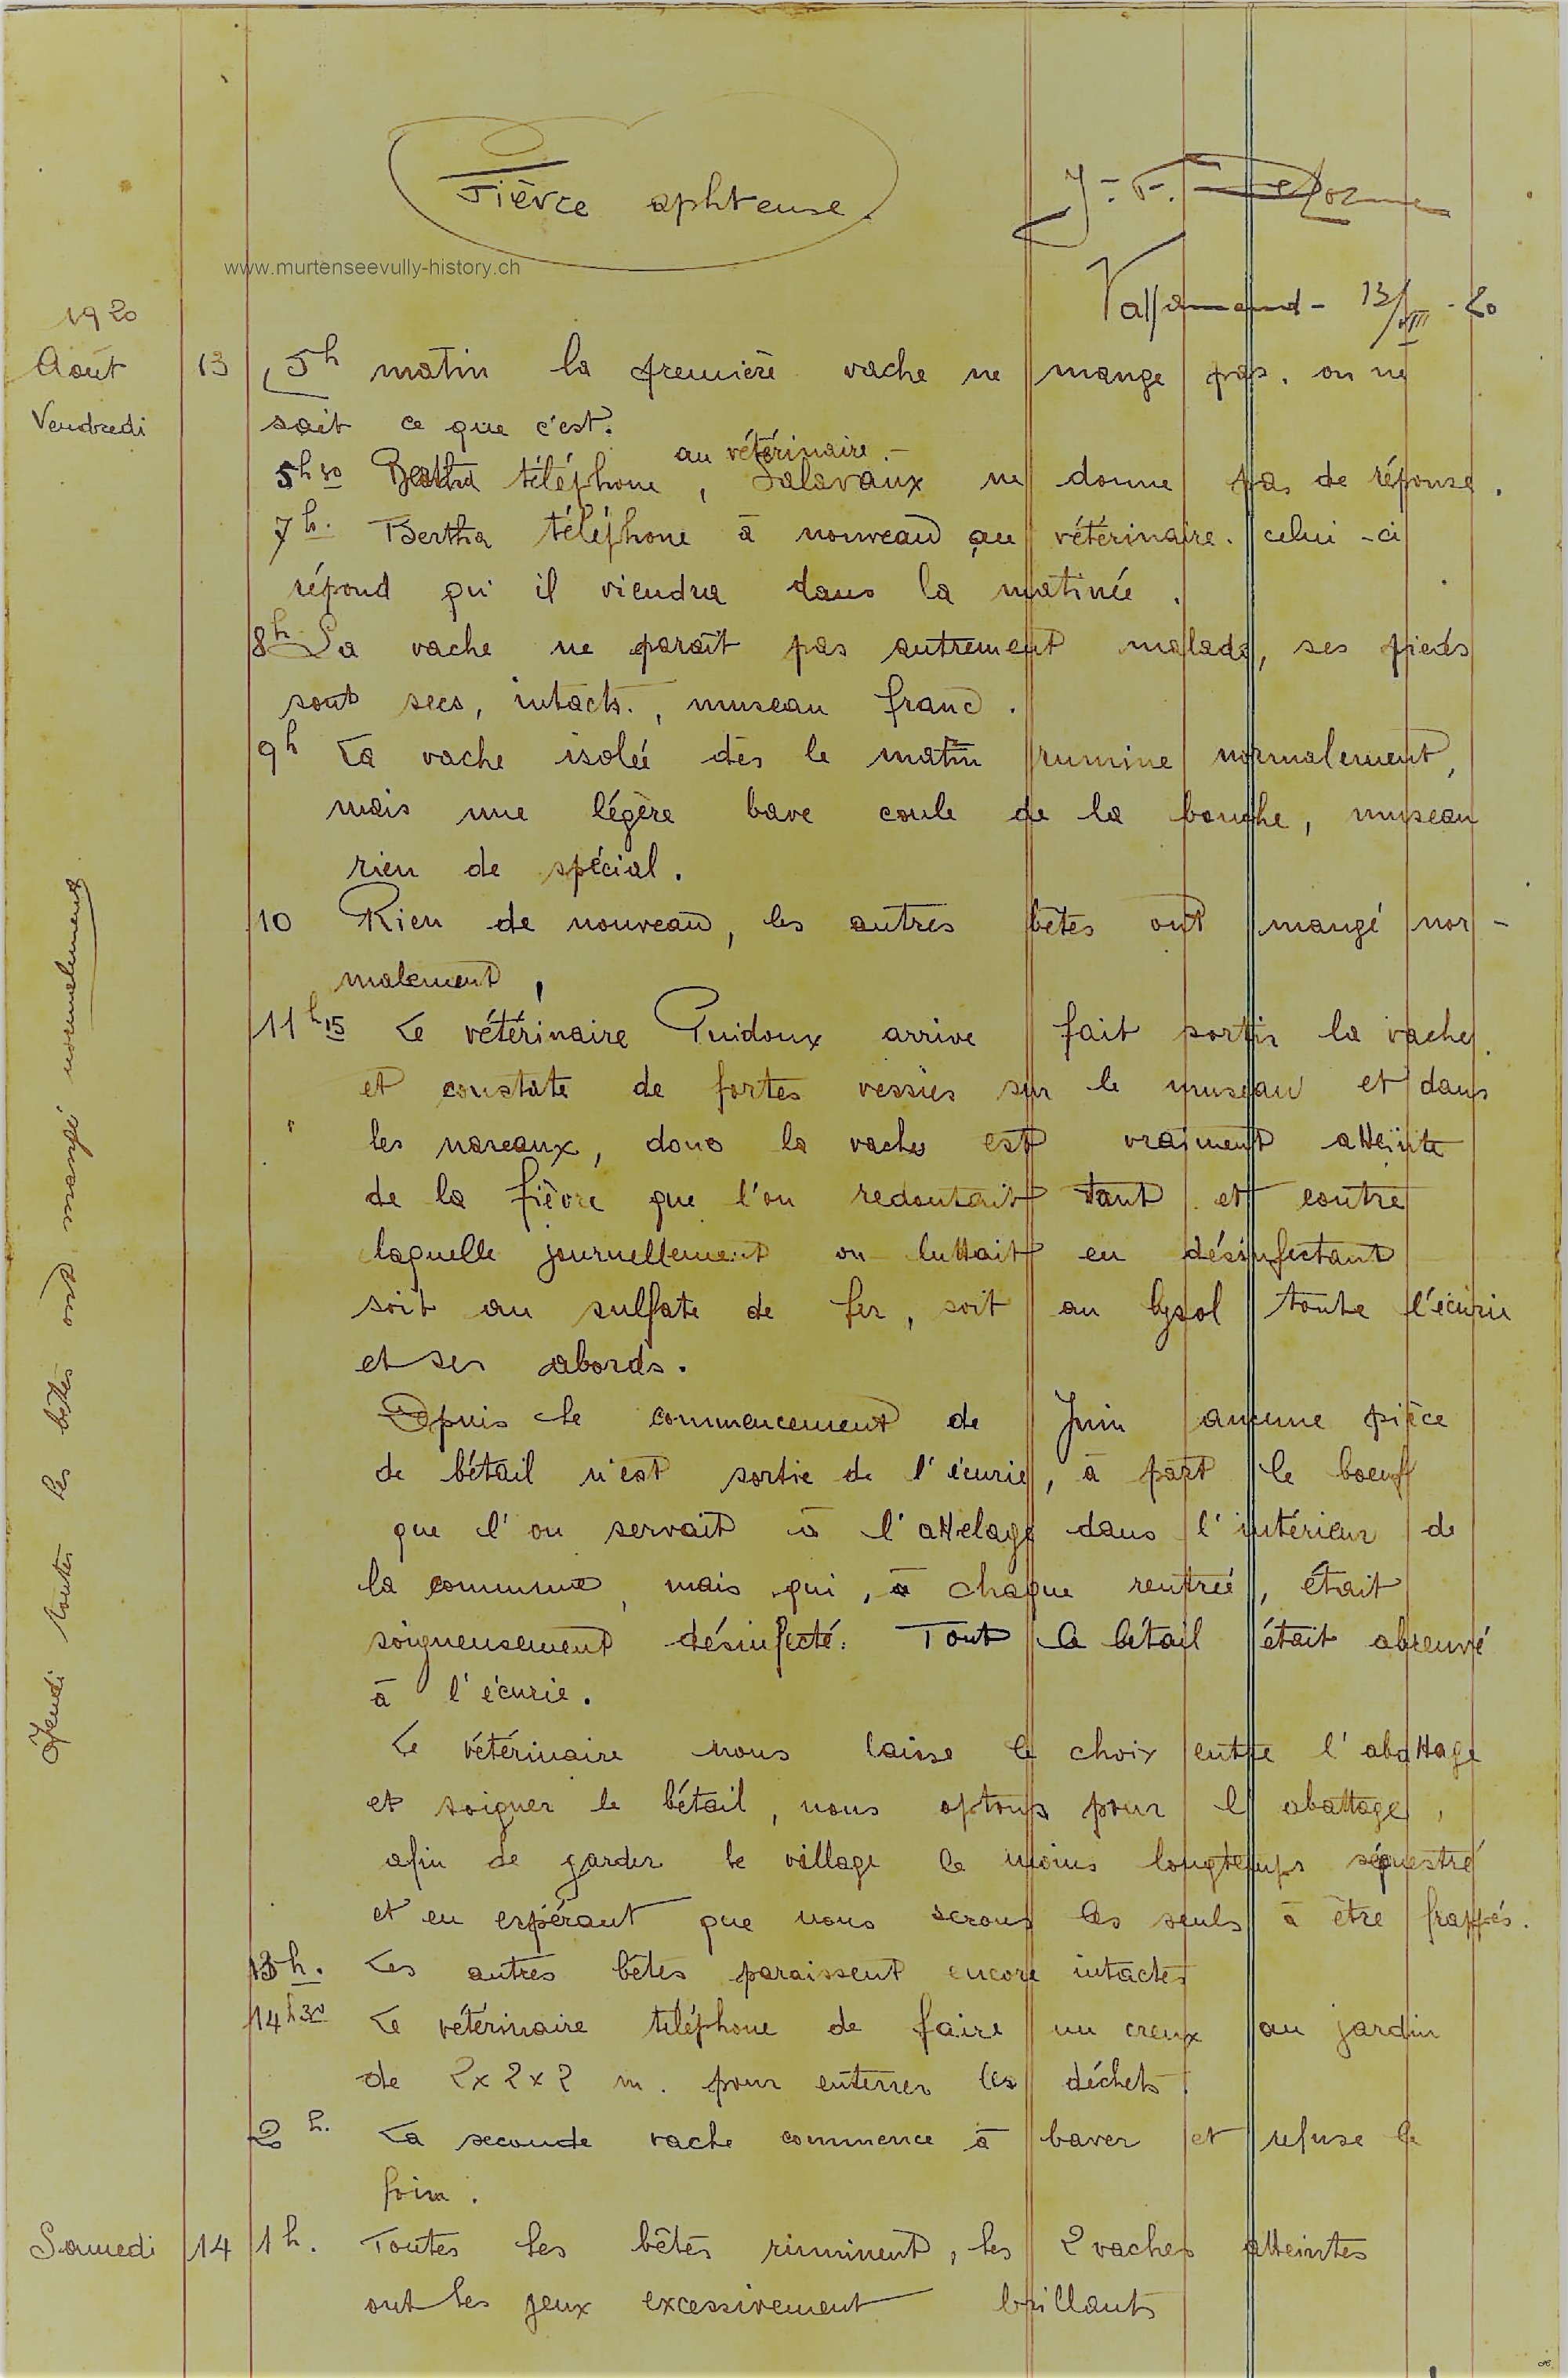 Fièvre aphteuse.
J.-F. Delorme
www.murtenseevully-history.ch
Vallamand - 13/VIII - 20
1920
Août 13 5h matin la première vache ne mange pas. on ne
Vendredi sait ce que c'est.
au vétérinaire.-
5h30 Bertha téléphone, Salavaux ne donne pas de réponse.
7h. Bertha téléphone à nouveau au vétérinaire. celui-ci
répond qu'il viendra dans la matinée.
8h La vache ne paraît pas autrement malade, ses pieds
sont secs, intacts., museau franc.
9h La vache isolée dès le matin rumine normalement,
mais une légère bave coule de la bouche, museau
rien de spécial.
10 Rien de nouveau, les autres bêtes ont mangé nor-
malement,
11h15 Le vétérinaire Guidoux arrive fait sortir la vache.
et constate de fortes vessies sur le museau et dans
les naseaux, donc la vache est vraiment atteinte
de la fièvre que l'on redoutait tant et contre
laquelle journellement on luttait en désinfectant
soit au sulfate de fer, soit au lysol toute l'écurie
et ses abords.
Depuis le commencement de Juin aucune pièce
de bétail n'est sortie de l'écurie, à part le boeuf
que l'on servait à l'attelage dans l'intérieur de
la commune, mais qui, à chaque rentrée, était
soigneusement désinfecté. Tout le bétail était abreuvé
à l'écurie.
Le vétérinaire nous laisse le choix entre l'abattage
et soigner le bétail, nous optons pour l'abattage,
afin de garder le village le moins longtemps séquestré
et en espérant que nous serons les seuls à être frappés.
13h. Les autres bêtes paraissent encore intactes
14h30 Le vétérinaire téléphone de faire un creux au jardin
de 2x2x2 m. pour enterrer les déchets.
2h. La seconde vache commence à baver et refuse le
foin.
Samedi 14 1h. Toutes les bêtes ruminent, les 2 vaches atteintes
ont les yeux excessivement brillants
Jeudi toutes les bêtes ont mangé normalement